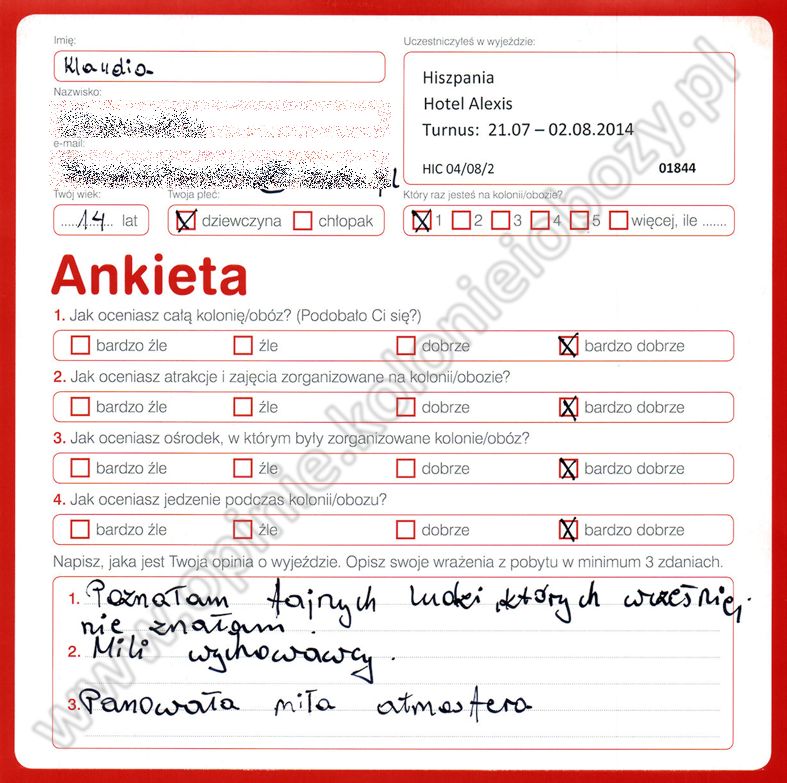 Imię:
Klaudia
Uczestniczyłeś w wyjeździe:
Hiszpania
Hotel Alexis
Turnus: 21.07 – 02.08.2014
HIC 04/08/2 01844
Nazwisko:
e-mail:
pl
Twój wiek:
14 lat
Twoja płeć:
dziewczyna chłopak
Który raz jesteś na kolonii/obozie?
1 2 3 4 5 więcej, ile .......
Ankieta
1. Jak oceniasz całą kolonię/obóz? (Podobało Ci się?)
bardzo źle źle dobrze bardzo dobrze
2. Jak oceniasz atrakcje i zajęcia zorganizowane na kolonii/obozie?
bardzo źle źle dobrze bardzo dobrze
3. Jak oceniasz ośrodek, w którym były zorganizowane kolonie/obóz?
bardzo źle źle dobrze bardzo dobrze
4. Jak oceniasz jedzenie podczas kolonii/obozu?
bardzo źle źle dobrze bardzo dobrze
Napisz, jaka jest Twoja opinia o wyjeździe. Opisz swoje wrażenia z pobytu w minimum 3 zdaniach.
1. Poznałam fajnych ludzi, których wcześniej
nie znałam.
2. Mili wychowawcy.
3. Panowała miła atmosfera
www.opinie.kolonieiobozy.pl